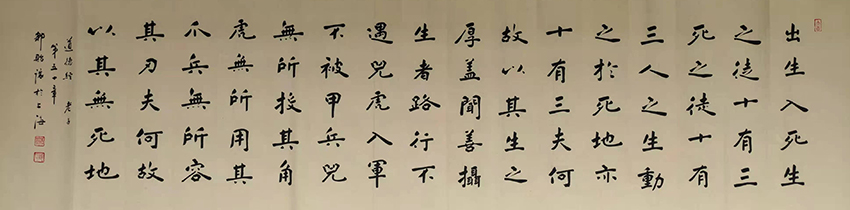 出生入死生
之徒十有三
死之徒十有
三人之生動
之於死地亦
十有三夫何
故以其生之
厚盖聞善攝
生者路行不
遇兕虎入軍
不被甲兵兕
無所投其角
虎無所用其
爪兵無所容
其刃夫何故
以其無死地
道德經 老子
第五十章
於上海